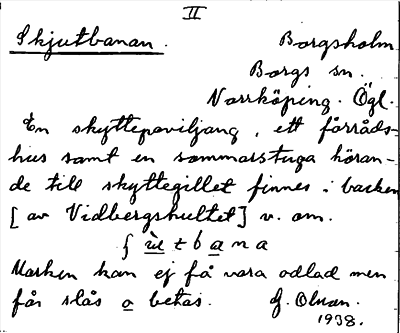 II
Skjutbanan.
Borgsholm
Borgs sn.
Norrköping. Ögl.
En skyttepaviljang, ett förråds-
hus samt en sommarstuga höran-
de till skyttegillet finnes i backen
[av Vidbergshultet] v. om.
ʃ ùtbana
Marken kan ej få vara odlad men
får slås o betas.
G. Olsson.
1938.